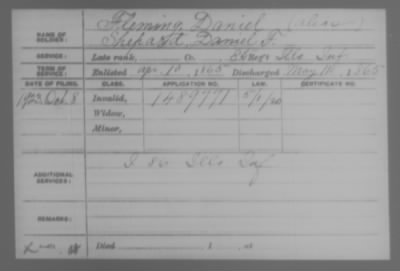 NAME OF SOLDIER: Fleming, Daniel (alias)
Shepard, Daniel F.
SERVICE: Late rank, Co. Regt Ills Inf
TERM OF SERVICE: Enlisted Apr. 1865 Discharged May 1865
DATE OF FILING. CLASS. APPLICATION NO. LAW. CERTIFICATE NO.
Invalid, 1489777
Widow,
Minor,
ADDITIONAL SERVICES: Ills Inf
REMARKS:
Died , 1 , at